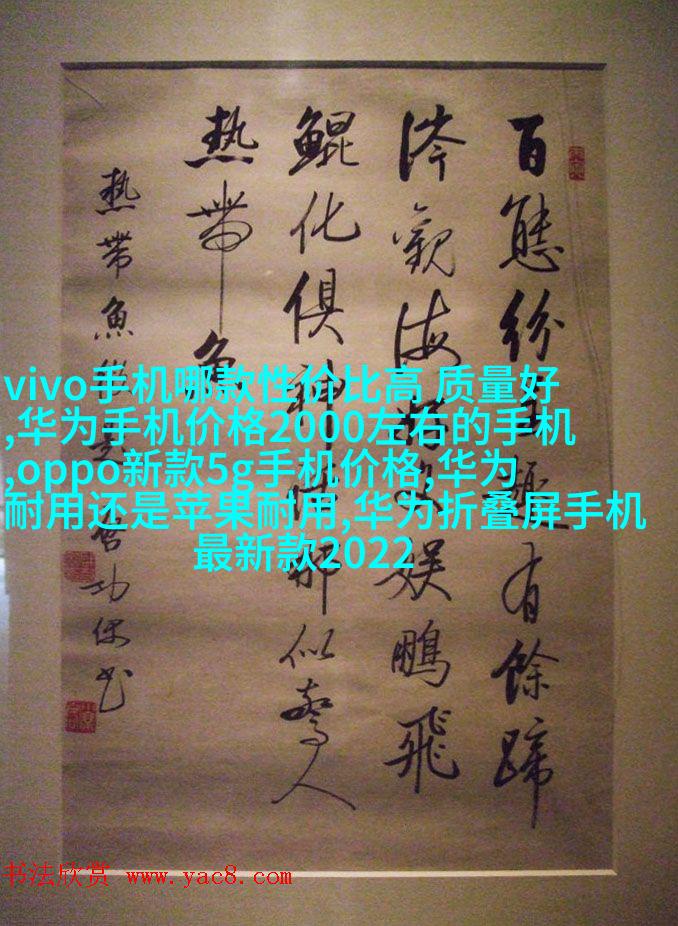 百態紛呈趣有餘蹄
涔觀海 娱鵬飛
鯤化俱神 那似 人
熱帶魚
熱帶魚 啓功
vivo手机哪款性价比高 质量好
,华为手机价格2000左右的手机
,oppo新款5g手机价格,华为
耐用还是苹果耐用,华为折叠屏手机
最新款2022
书法欣赏 www.yac8.com